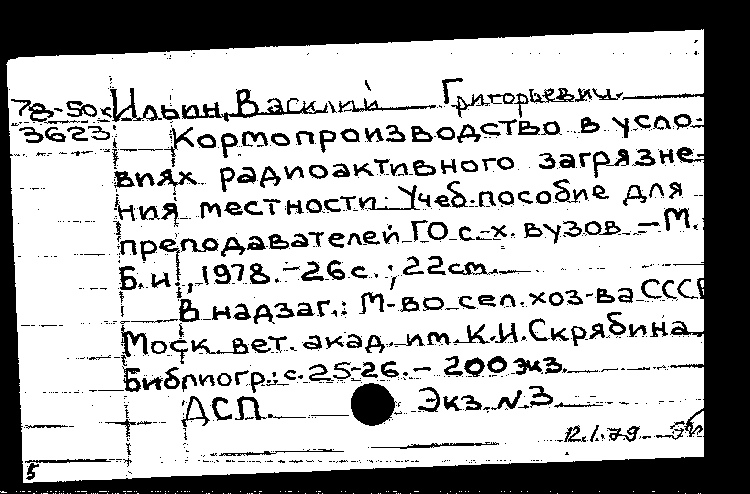 78-50к Ильин, Василий Григорьевич.
3623 Кормопроизводство в усло-
виях радиоактивного загрязне-
ния местности: Учеб. пособие для
преподавателей ГО с.-х. вузов. – М.:
Б. и., 1978. – 26 с.; 22 см.
В надзаг.: М-во сел. хоз-ва СССР
Моск. вет. акад. им. К. И. Скрябина.
Библиогр.: с. 25-26. – 200 экз.
ДСП. Экз. №3.
12.1.79
5